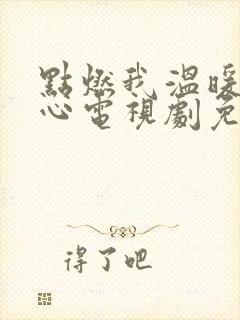 點燃我溫暖
心電視劇免
得了吧